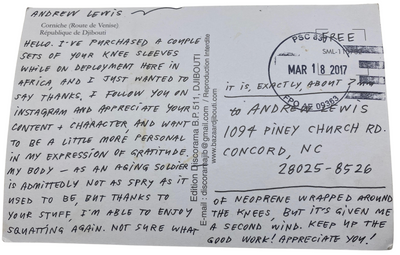 ANDREW LEWIS
Corniche (Route de Venise)
République de Djibouti
HELLO. I'VE PURCHASED A COUPLE
SETS OF YOUR KNEE SLEEVES
WHILE ON DEPLOYMENT HERE IN
AFRICA, AND I JUST WANTED TO
SAY THANKS. I FOLLOW YOU ON
INSTAGRAM AND APPRECIATE YOUR
CONTENT + CHARACTER, AND WANT
TO BE A LITTLE MORE PERSONAL
IN MY EXPRESSION OF GRATITUDE.
MY BODY – AS AN AGING SOLDIER –
IS ADMITTEDLY NOT AS SPRY AS IT
USED TO BE, BUT THANKS TO
YOUR STUFF, I'M ABLE TO ENJOY
SQUATTING AGAIN. NOT SURE WHAT
Edition Discorama B.P. 511, DJIBOUTI
E-mail : discoramajib@gmail.com / Reproduction Interdite
www.bazaardjibouti.com
FREE
MAR 18 2017
IT IS, EXACTLY, ABOUT
to ANDREW LEWIS
1094 PINEY CHURCH RD.
CONCORD, NC
28025-8526
OF NEOPRENE WRAPPED AROUND
THE KNEES, BUT IT'S GIVEN ME
A SECOND WIND. KEEP UP THE
GOOD WORK! APPRECIATE YOU!